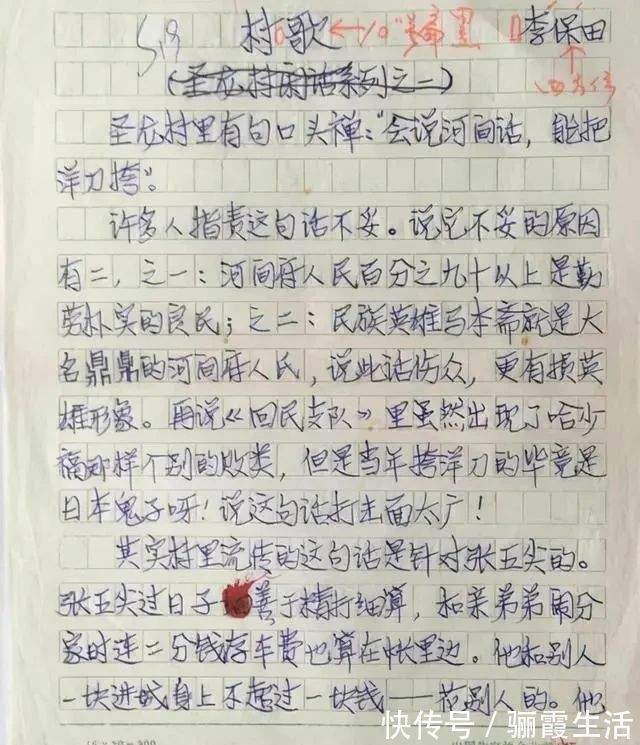 村歌 李保田
(圣龙村闲话系列之一)
圣龙村里有句口头禅:“会说河间话,能把
洋刀挎”。
许多人指责这句话不妥。说它不妥的原因
有二,之一:河间府人民百分之九十以上是勤
劳朴实的良民;之二:民族英雄马本斋就是大
名鼎鼎的河间府人民,说此话伤众,更有损英
雄形象。再说《回民支队》里虽然出现了哈少
福那样个别的败类,但是当年挎洋刀的毕竟是
日本鬼子呀!说这句话打击面太广!
其实村里流传的这句话是针对张五尖的。
张五尖过日子善于精打细算,和亲弟弟闹分
家时连二分钱存车费也算在帐里边。他和别人
一块进城身上不超过一块钱——花别人的。他
快传号/骊霞生活